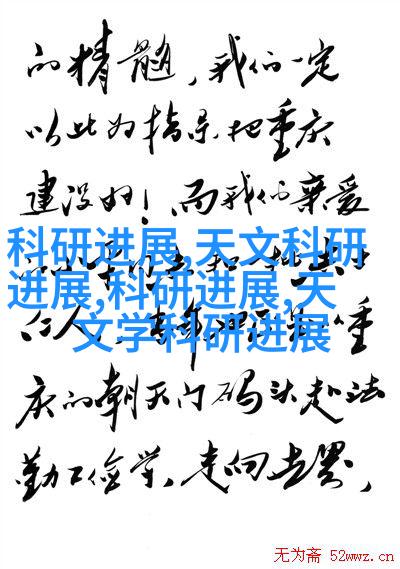 的精髓，我们一定
以此为指导把重庆
建设好！而我们亲爱
科研进展,天文科研
进展,科研进展,天
文学科研进展
庆的朝天门码头赴法
勤工俭学，走向世界，
无为斋 52wwz.cn